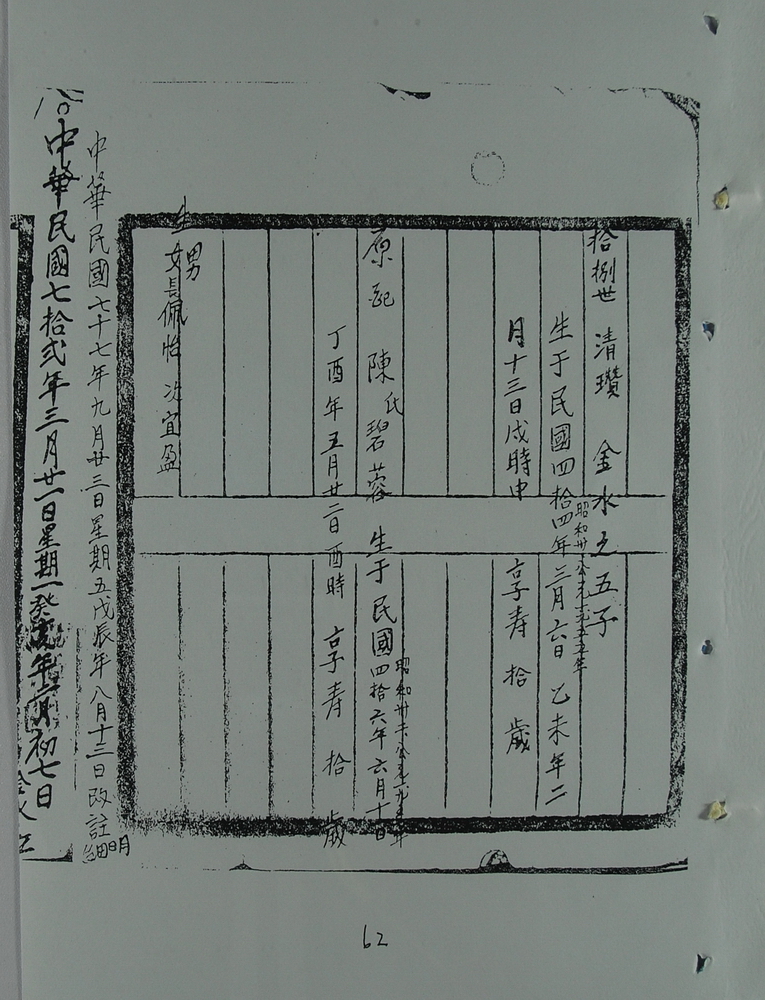 拾捌世 清瓚 金水之五子
生于民國四拾四年三月六日 乙未年二
昭和卅公元一九五五年
月十三日戌時中 享壽 拾 歲
原配 陳氏碧蓉 生于民國四拾六年六月十日
昭和卅 公元一九 年
丁酉年五月廿二日酉時 享壽 拾 歲
生 男
女長佩怡 次宜盈
中華民國七十七年九月廿三日星期五戊辰年八月十三日改註明細
中華民國七拾弍年三月廿一日星期一癸亥年 月初七日
62